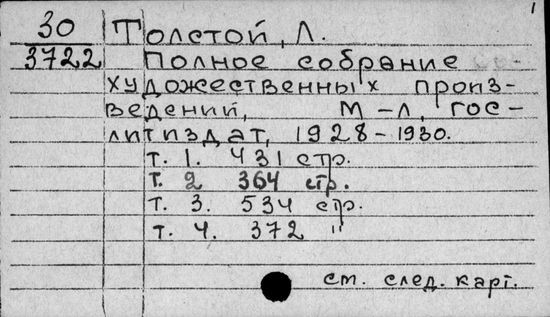 1
30 Толстой, Л.
3722 Полное собрание
художественных произ-
ведений, М-Л, гос-
литиздат, 1928-1930.
т. 1. 431 стр.
т. 2 364 стр.
т. 3. 534 стр.
т. 4. 372 "
см. след. карт.